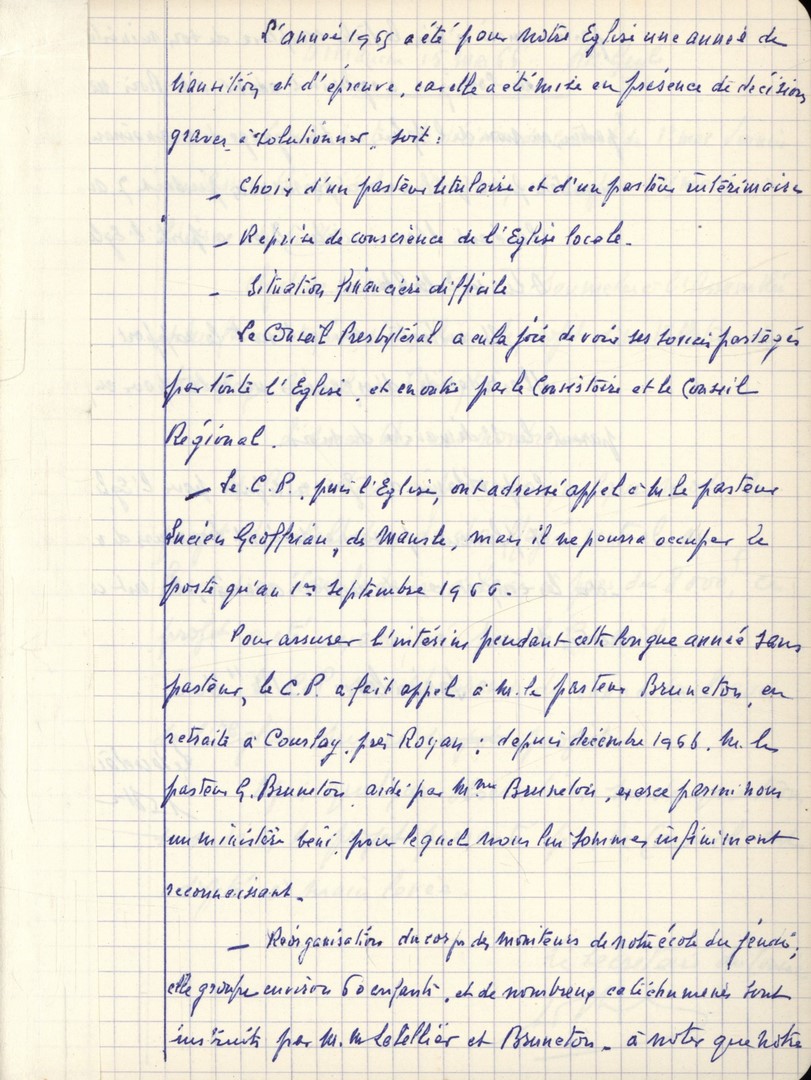 L'année 1965 a été pour notre Eglise une année de
transition et d'épreuve, car elle a été mise en présence de décisions
graves à solutionner, soit :
_ Choix d'un pasteur titulaire et d'un pasteur intérimaire
_ Reprise de conscience de l'Eglise locale.
_ Situation financière difficile
Le Conseil Presbytéral a eu la joie de voir ses soucis partagés
par toute l'Eglise, et en outre par le Consistoire et le Conseil
Régional.
_ Le C.P., puis l'Eglise, ont adressé appel à M. le pasteur
Lucien Geoffrian, de Mansle, mais il ne pourra occuper le
poste qu'au 1er Septembre 1966.
Pour assurer l'intérim pendant cette longue année sans
pasteur, le C.P. a fait appel à M. le pasteur Bruneton, en
retraite à Courlay, près Royan ; depuis décembre 1966, M. le
pasteur G. Bruneton aidé par Mme Bruneton, exerce parmi nous
un ministère béni, pour lequel nous lui sommes infiniment
reconnaissant.
_ Réorganisation du corps des moniteurs de notre école du jeudi ;
elle groupe environ 60 enfants, et de nombreux catéchumènes sont
instruits par M. M. Letellier et Bruneton _ à noter que notre